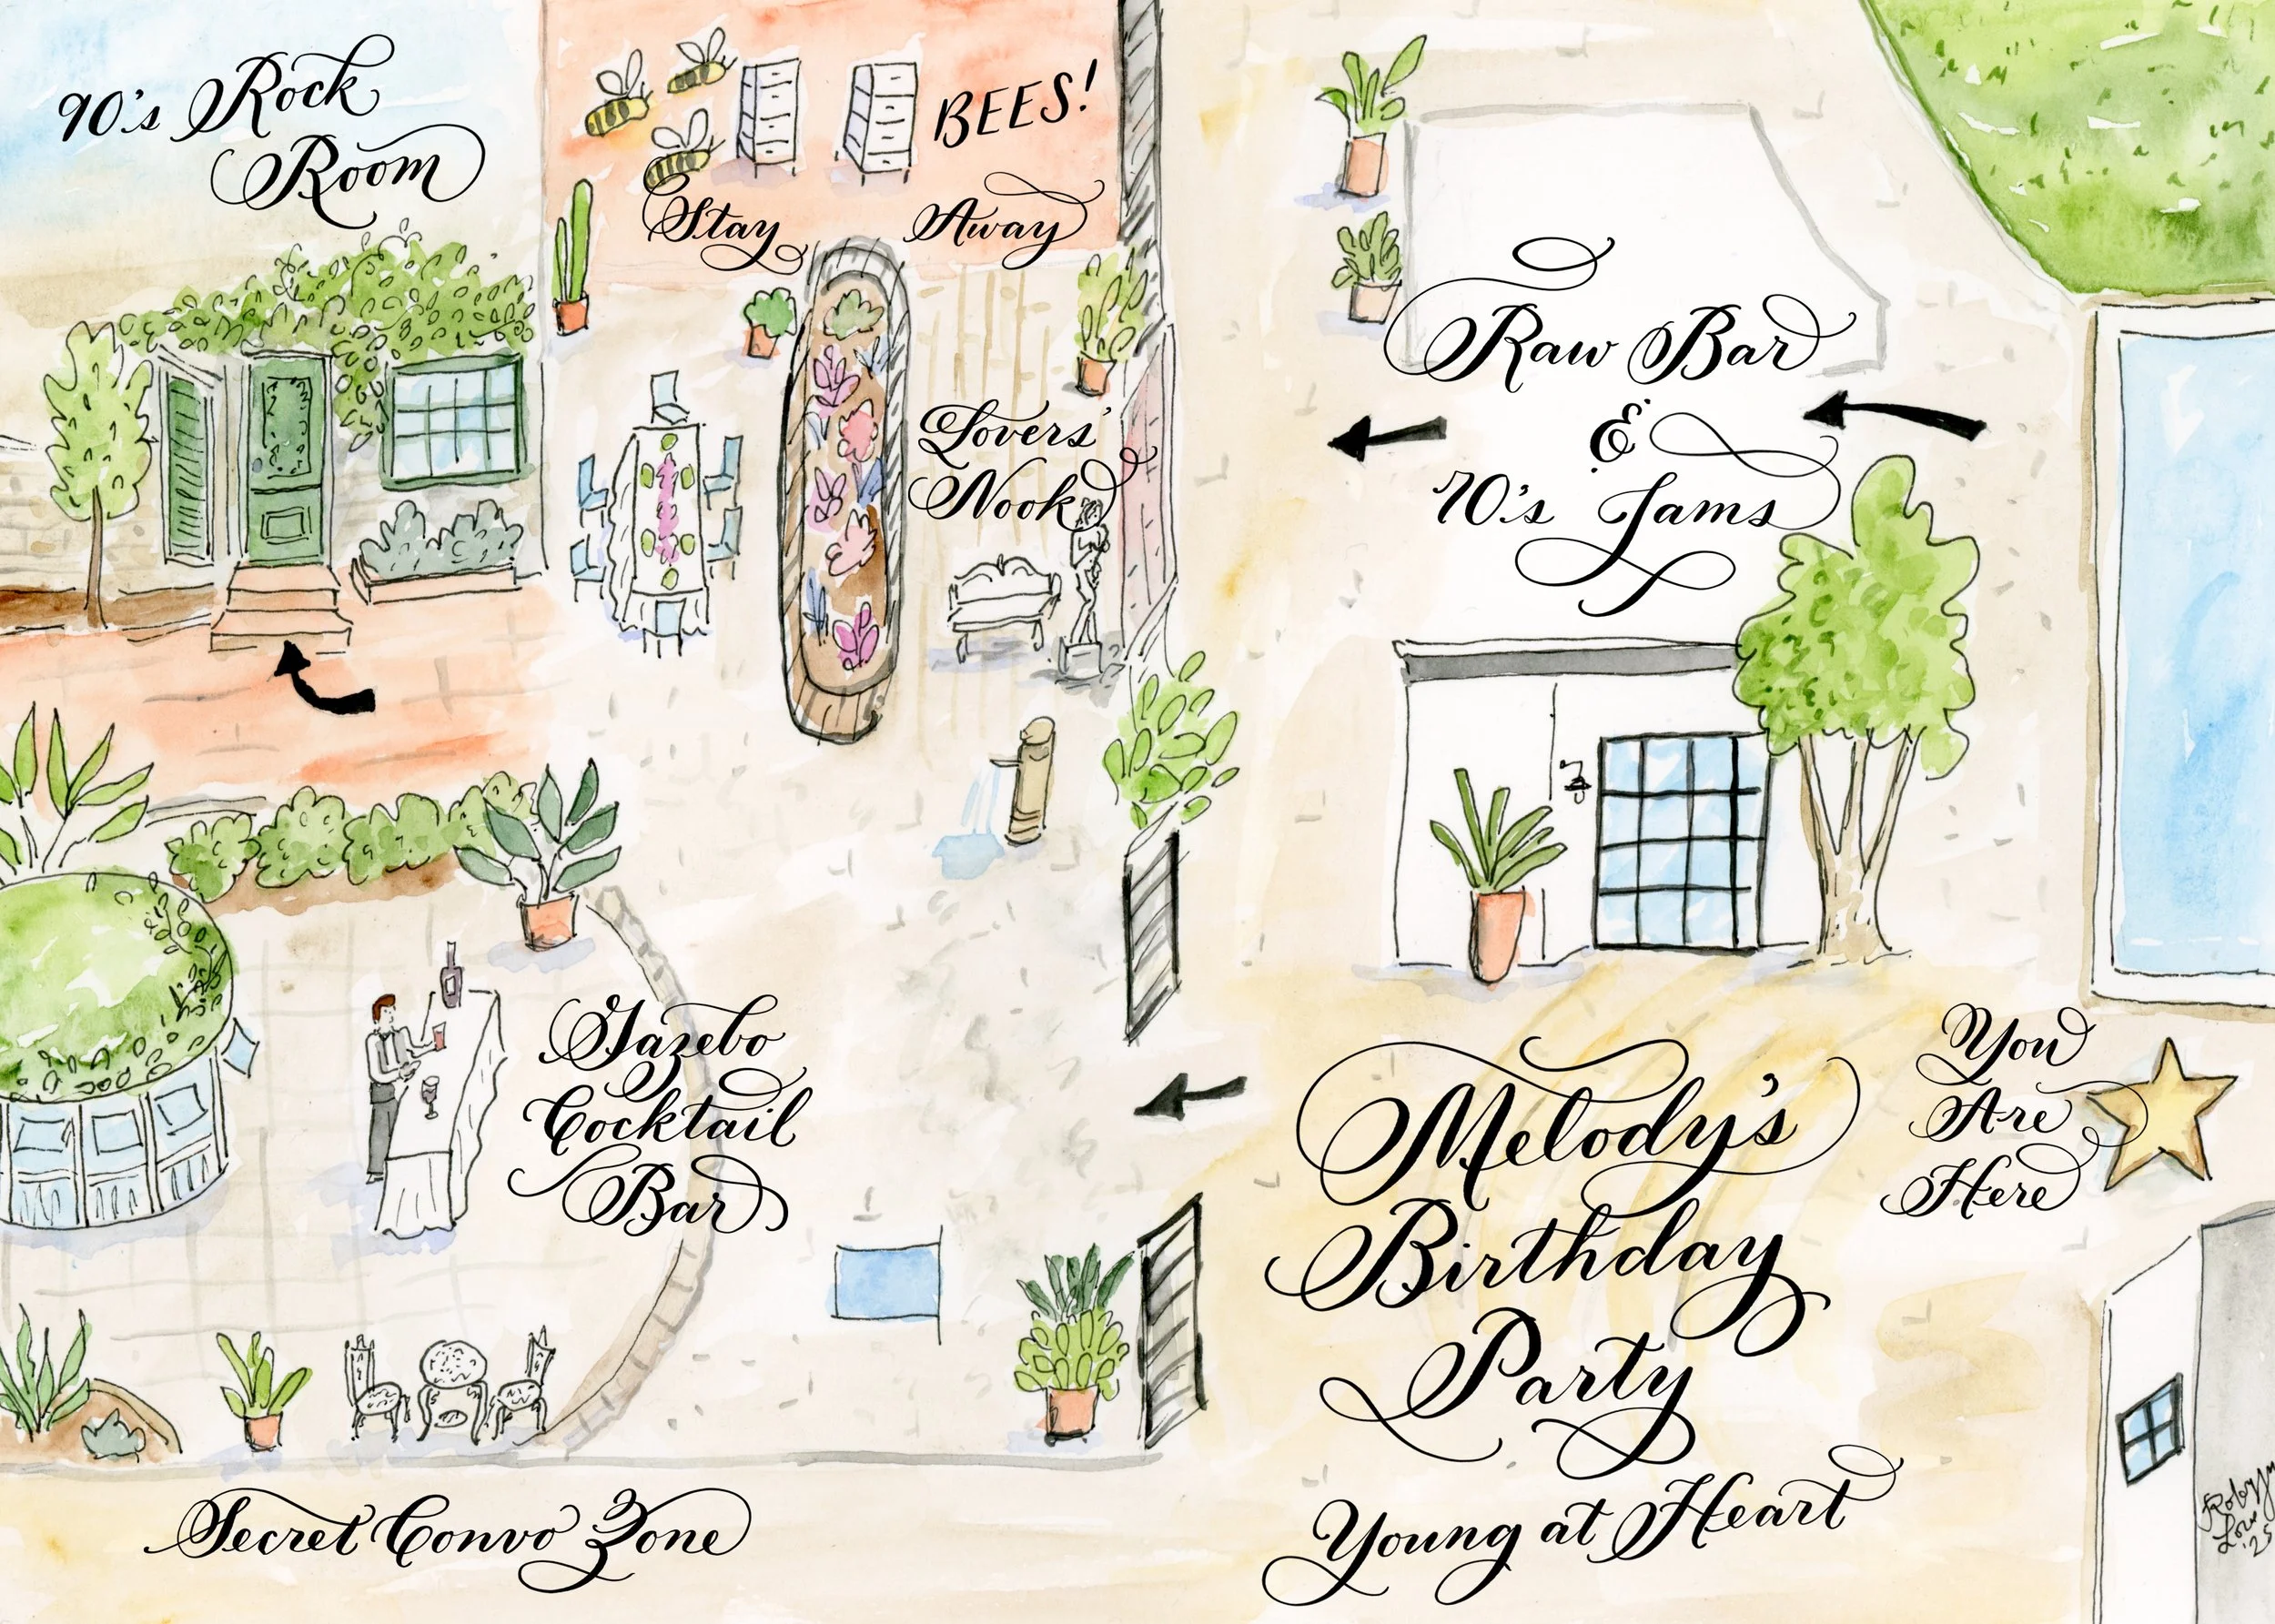 90's Rock
Room
BEES!
Stay Away
Lovers'
Nook
Raw Bar
&
70's Jams
Gazebo
Cocktail
Bar
Secret Convo Zone
You
Are
Here
Melody's
Birthday
Party
Young at Heart
'25